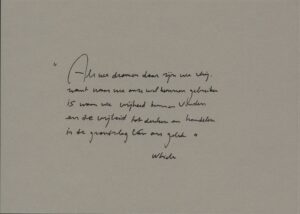 "Als we dromen daar zijn we vrij,
want waar we onze wil kunnen gebruiken
is waar we vrijheid kunnen vinden
en de vrijheid tot denken en handelen
is de grondslag van ons geluk"